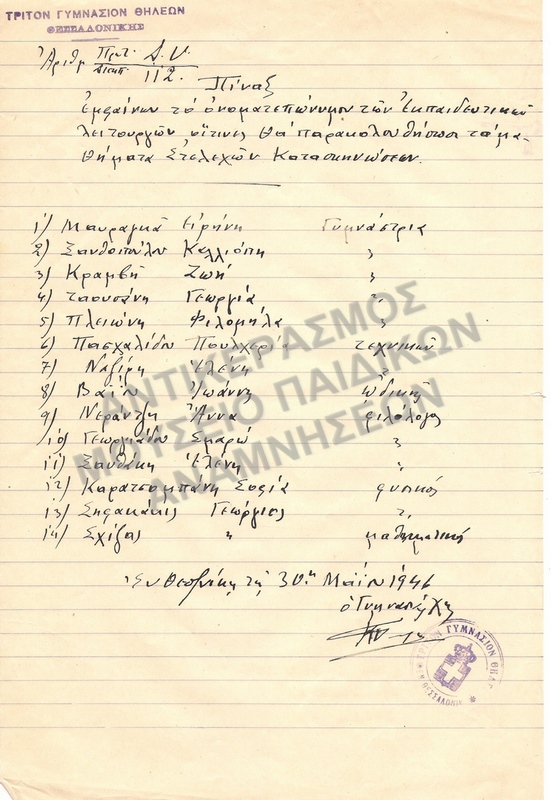 ΤΡΙΤΟΝ ΓΥΜΝΑΣΙΟΝ ΘΗΛΕΩΝ
ΘΕΣΣΑΛΟΝΙΚΗΣ
Ἀριθ Πρωτ. Δ.Υ.
Διεκπ. 112.
Πίναξ
Ἐμφαίνων τὸ ὀνοματεπώνυμον τῶν Ἐκπαιδευτικῶν
λειτουργῶν οἵτινες θὰ παρακολουθήσωσι τὰ μα-
θήματα Στελεχῶν Κατασκηνώσεων.
1) Μαυραγκᾶ Εἰρήνη Γυμνάστρια
2) Ξανθοπούλου Καλλιόπη "
3) Κραμβῆ Ζωή "
4) Τσουσάνη Γεωργία "
5) Πλειώνη Φιλομήλα "
6) Πασχαλίδου Πουλχερία τεχνικῶν
7) Ναζίρη Ἑλένη "
8) Βαΐου Ἰωάννα ᾠδικῆς
9) Νεράντζη Ἄννα φιλόλογος
10) Γεωργιάδου Σμαρώ "
11) Ξανθάκη Ἑλένη "
12) Καρατσομπάνη Σοφία φυσικός
13) Σηφακάκις Γεώργιος "
14) Σχίζας " μαθηματικός
Ἐν Θεσ/νίκῃ τῇ 30ῃ Μαΐου 1946
ὁ Γυμνασιάρχης
ΤΡΙΤΟΝ ΓΥΜΝΑΣΙΟΝ ΘΗΛΕΩΝ ΘΕΣΣΑΛΟΝΙΚΗΣ
ΑΝΤΙΚΕΡΑΣΜΟΣ
ΜΟΥΣΕΙΟ ΠΑΙΔΙΚΩΝ
ΑΝΑΜΝΗΣΕΩΝ